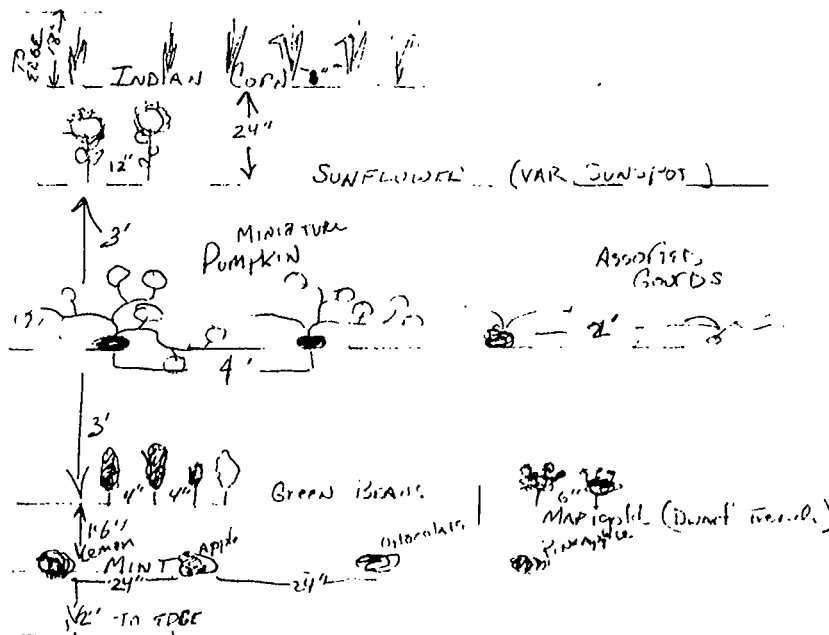 TO EDGE 18"
INDIAN CORN 8"
24"
12"
SUNFLOWER (VAR. SUNSPOT)
3'
MINIATURE
PUMPKIN
ASSORTED
GOURDS
4'
3'
4" 4" GREEN BEANS
6"
MARIGOLD (DWARF FRENCH)
1'6"
Lemon Apple Chocolate Pineapple
MINT
24" 24"
TO EDGE